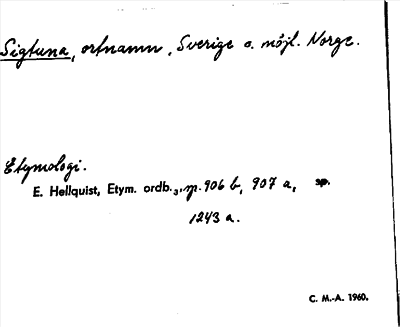 Sigtuna, ortnamn, Sverige o. möjl. Norge.
Etymologi.
E. Hellquist, Etym. ordb.3, p. 906 b, 907 a, sp.
1243 a.
C. M.-A. 1960.